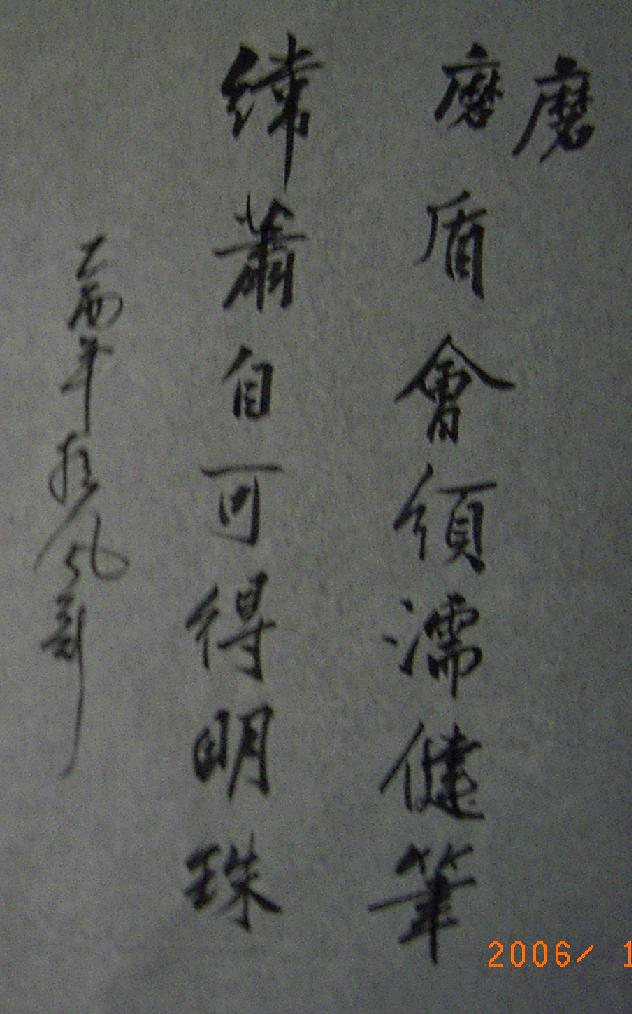 磨
磨盾會須濡健筆
緯蕭自可得明珠
年
2006/ 1